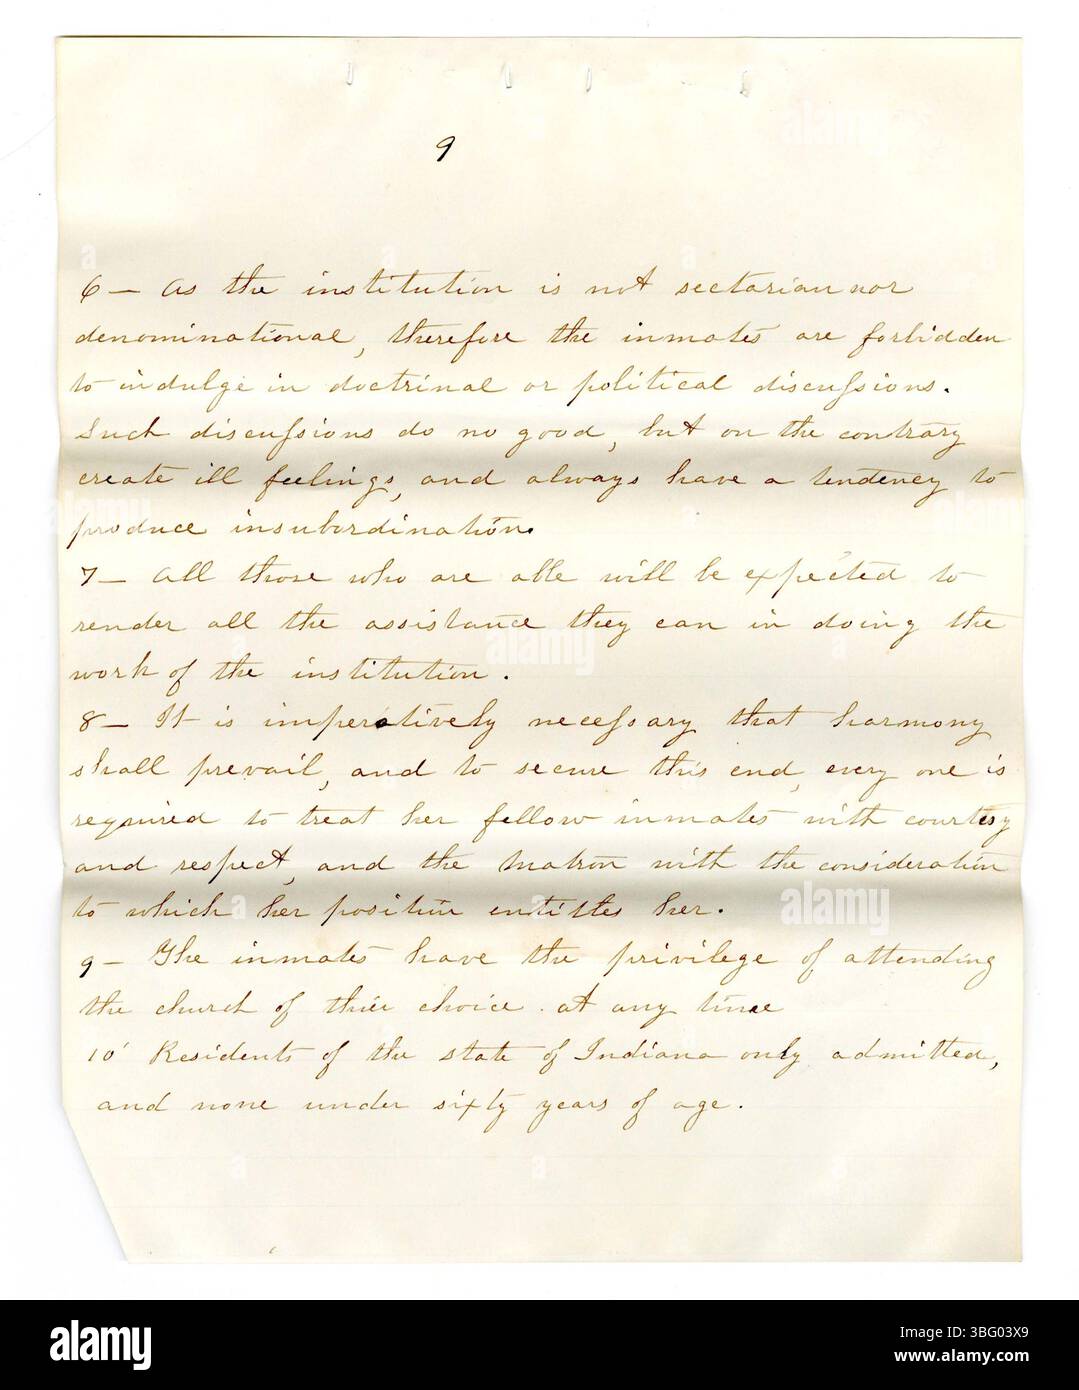 9
6 — As the institution is not sectarian nor
denominational, therefore the inmates are forbidden
to indulge in doctrinal or political discussions.
Such discussions do no good, but on the contrary
create ill feelings, and always have a tendency to
produce insubordination.
7 — All those who are able will be expected to
render all the assistance they can in doing the
work of the institution.
8 — It is imperatively necessary that harmony
shall prevail, and to secure this end, every one is
required to treat her fellow inmates with courtesy
and respect, and the Matron with the consideration
to which her position entitles her.
9 — The inmates have the privilege of attending
the church of their choice at any time
10 Residents of the state of Indiana only admitted,
and none under sixty years of age.
alamy
Image ID: 3BG03X9
www.alamy.com